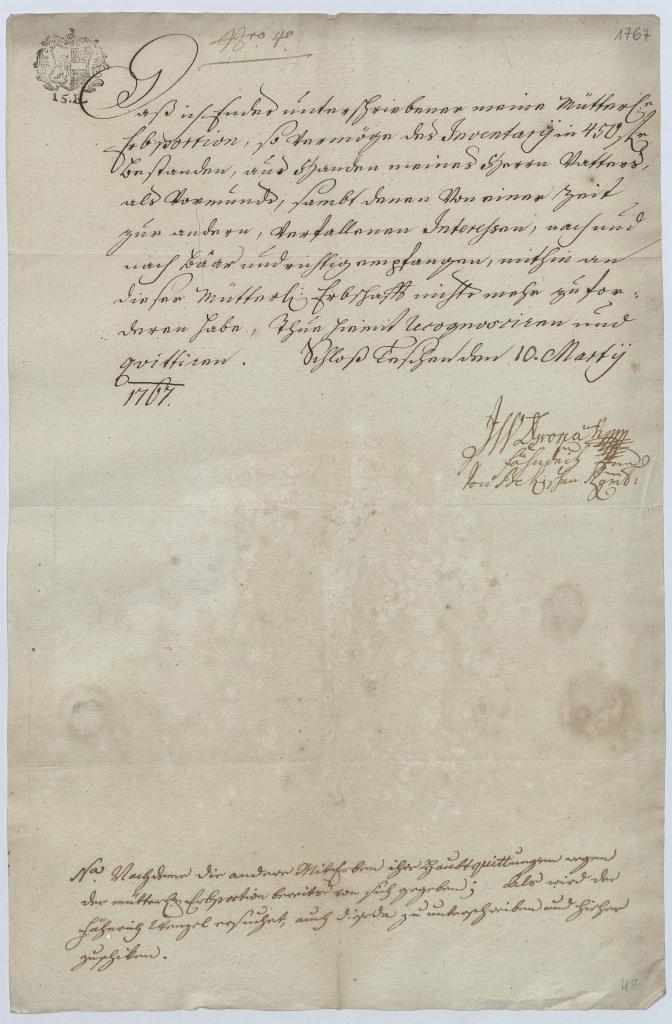 Nro 4o
1767
15.K
Daß ich Endes unterschriebener meine Mütterl:e
Erbportion, so vermöge des Inventarij in 450 f Kr
bestanden, aus Handen meines Herrn Vatters,
als Vormunds, sambt denen von einer Zeit
zur andern, verfallenen Interessen, nach und
nach Baar und richtig empfangen, mithin an
dieser Mütterl: Erbschafft nichts mehr zu for-
deren habe, Thue hiemit recognosciren und
quittiren. Schloß Teschen den 10. Martij
1767.
Fähndrich
Na. Nachdeme die andere Mit Erben ihre Haubt quittungen wegen
der mütterl: Erbportion bereits von sich gegeben; Als wird der
Fähnrich Wenzel ersuchet, auch diese zu unterschreiben und hieher
zuschiken.
47